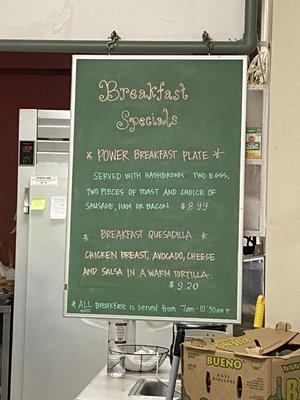 Breakfast
Specials
* POWER BREAKFAST PLATE *
SERVED WITH HASHBROWN TWO EGGS,
TWO PIECES OF TOAST AND CHOICE OF
SAUSAGE, HAM OR BACON. $8.99
* BREAKFAST QUESADILLA *
CHICKEN BREAST, AVOCADO, CHEESE
AND SALSA IN A WARM TORTILLA.
$9.20
* ALL BREAKFAST is SERVED FROM 7AM - 10:30AM *
BUENO
BUENO